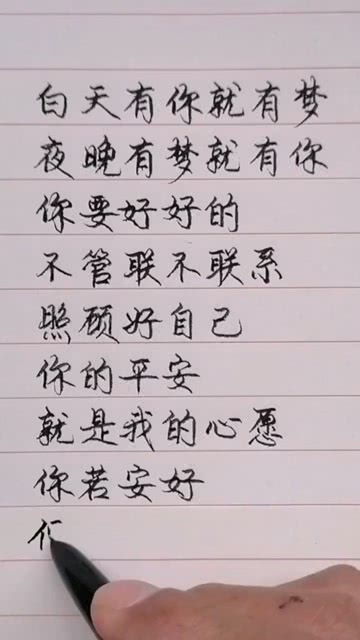 白天有你就有梦
夜晚有梦就有你
你要好好的
不管联不联系
照顾好自己
你的平安
就是我的心愿
你若安好